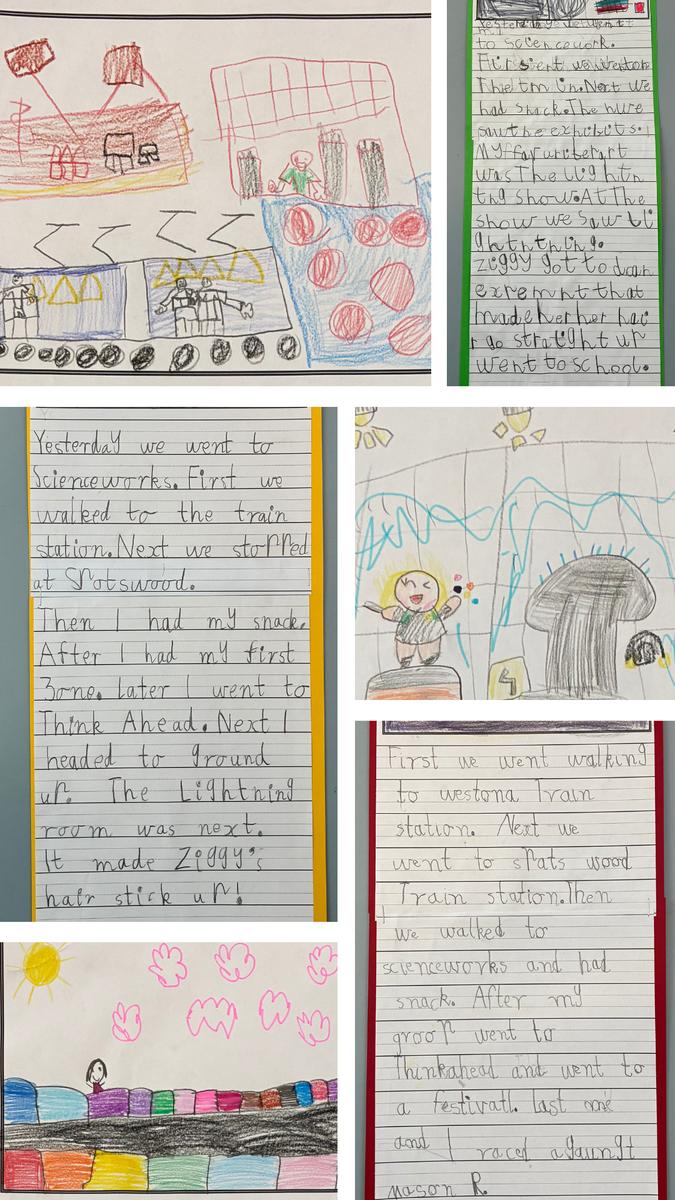 Yesterday we went
to Sciencework.
First we went on
The tm in. Next we
had snack. The nwe
saw the exhibits.
My favuriterart
was The Lightn
tng show. At The
show we saw Li
ghtntning.
Ziggy got to doan
exremnt that
made her her hai
r go straight up
went to school.
Yesterday we went to
Scienceworks. First we
walked to the train
station. Next we stopped
at Spotswood.
Then I had my snack.
After I had my first
Zone. later I went to
Think Ahead. Next I
headed to ground
up. The Lightning
room was next.
It made Ziggy's
hair stick up!
4
First we went walking
to westona Train
station. Next we
went to spats wood
Train station. Then
we walked to
scienceworks and had
snack. After my
groop went to
Thinkahead and went to
a festivatl. last me
and I raced agaungt
mason R.